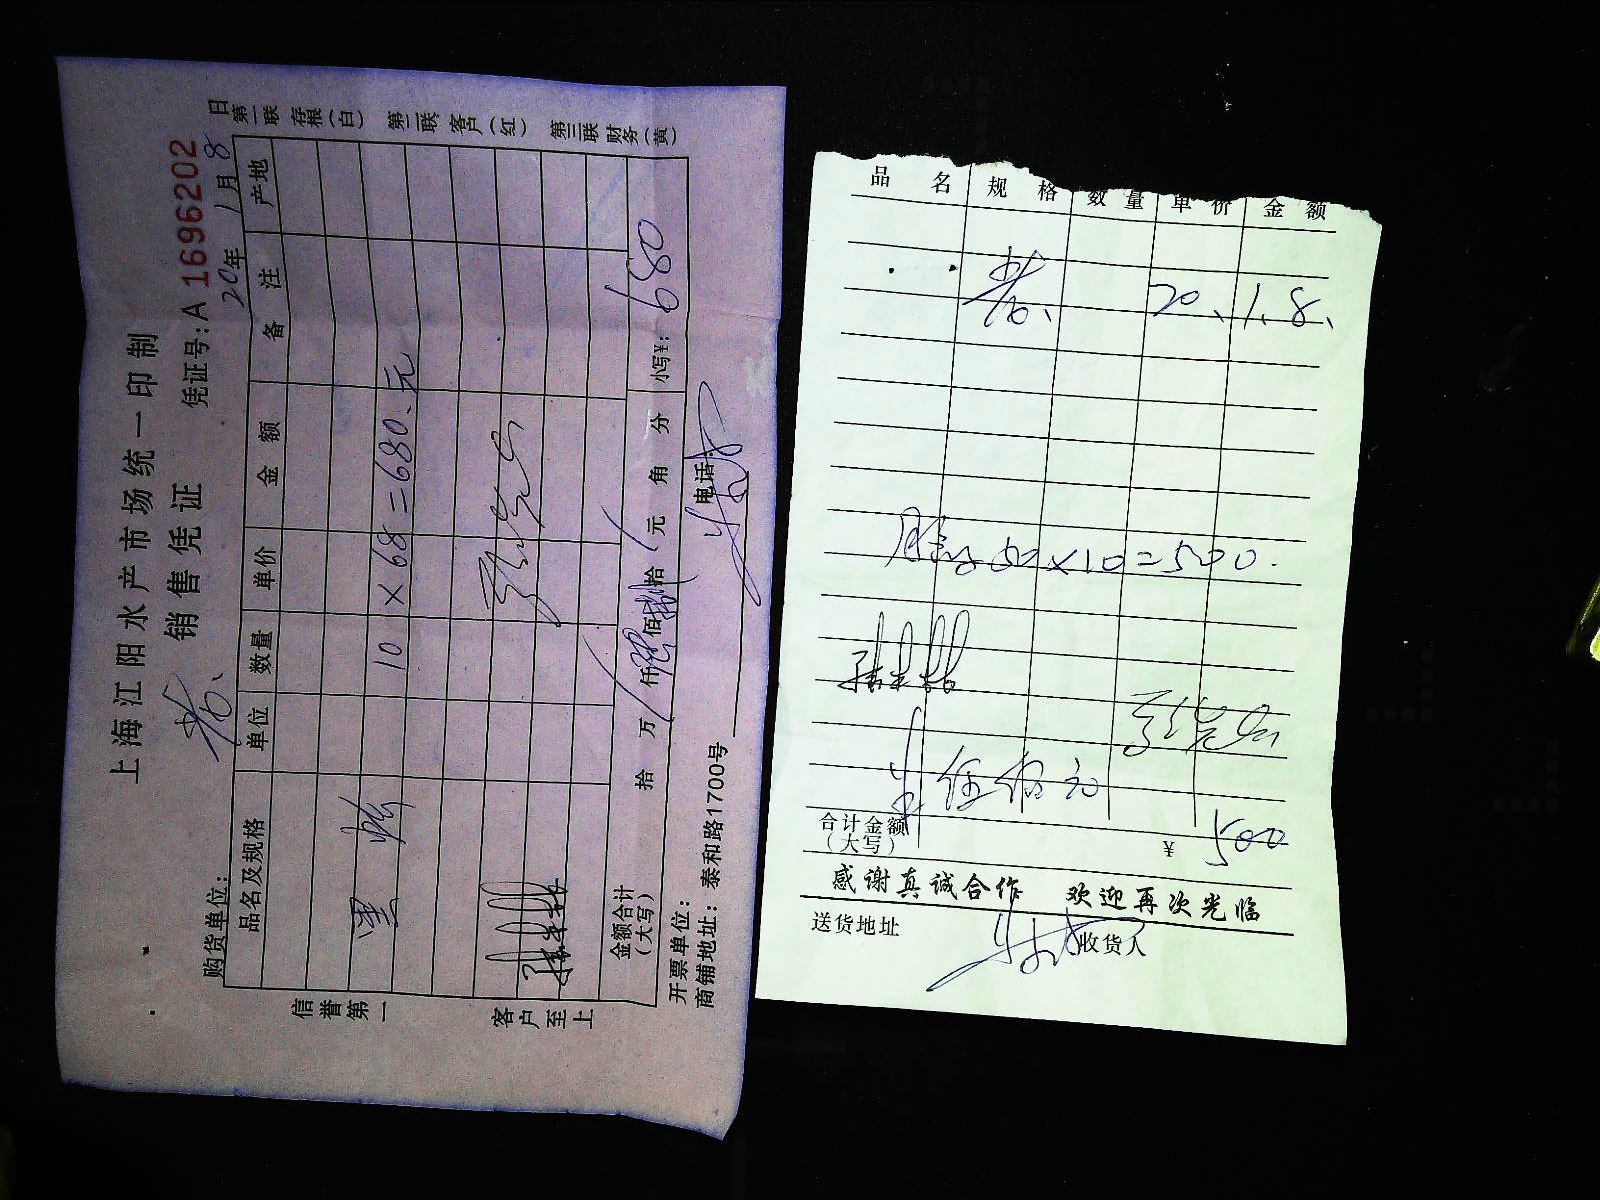 上海江阳水产市场统一印制
销售凭证
凭证号：A 1696202
购货单位：
20年1月8日
品名及规格 单位 数量 单价 金额 备注 产地
黑
10×68=680.元
金额合计（大写） 拾 万 仟 佰 拾 元 角 分 小写¥：680
开票单位：
电话：
商铺地址：泰和路1700号
信誉第一
客户至上
第一联 存根（白） 第二联 客户（红） 第三联 财务（黄）
品名 规格 数量 单价 金额
20、1、8、
50×10=500.
合计金额（大写） ¥ 500
感谢真诚合作 欢迎再次光临
送货地址 收货人